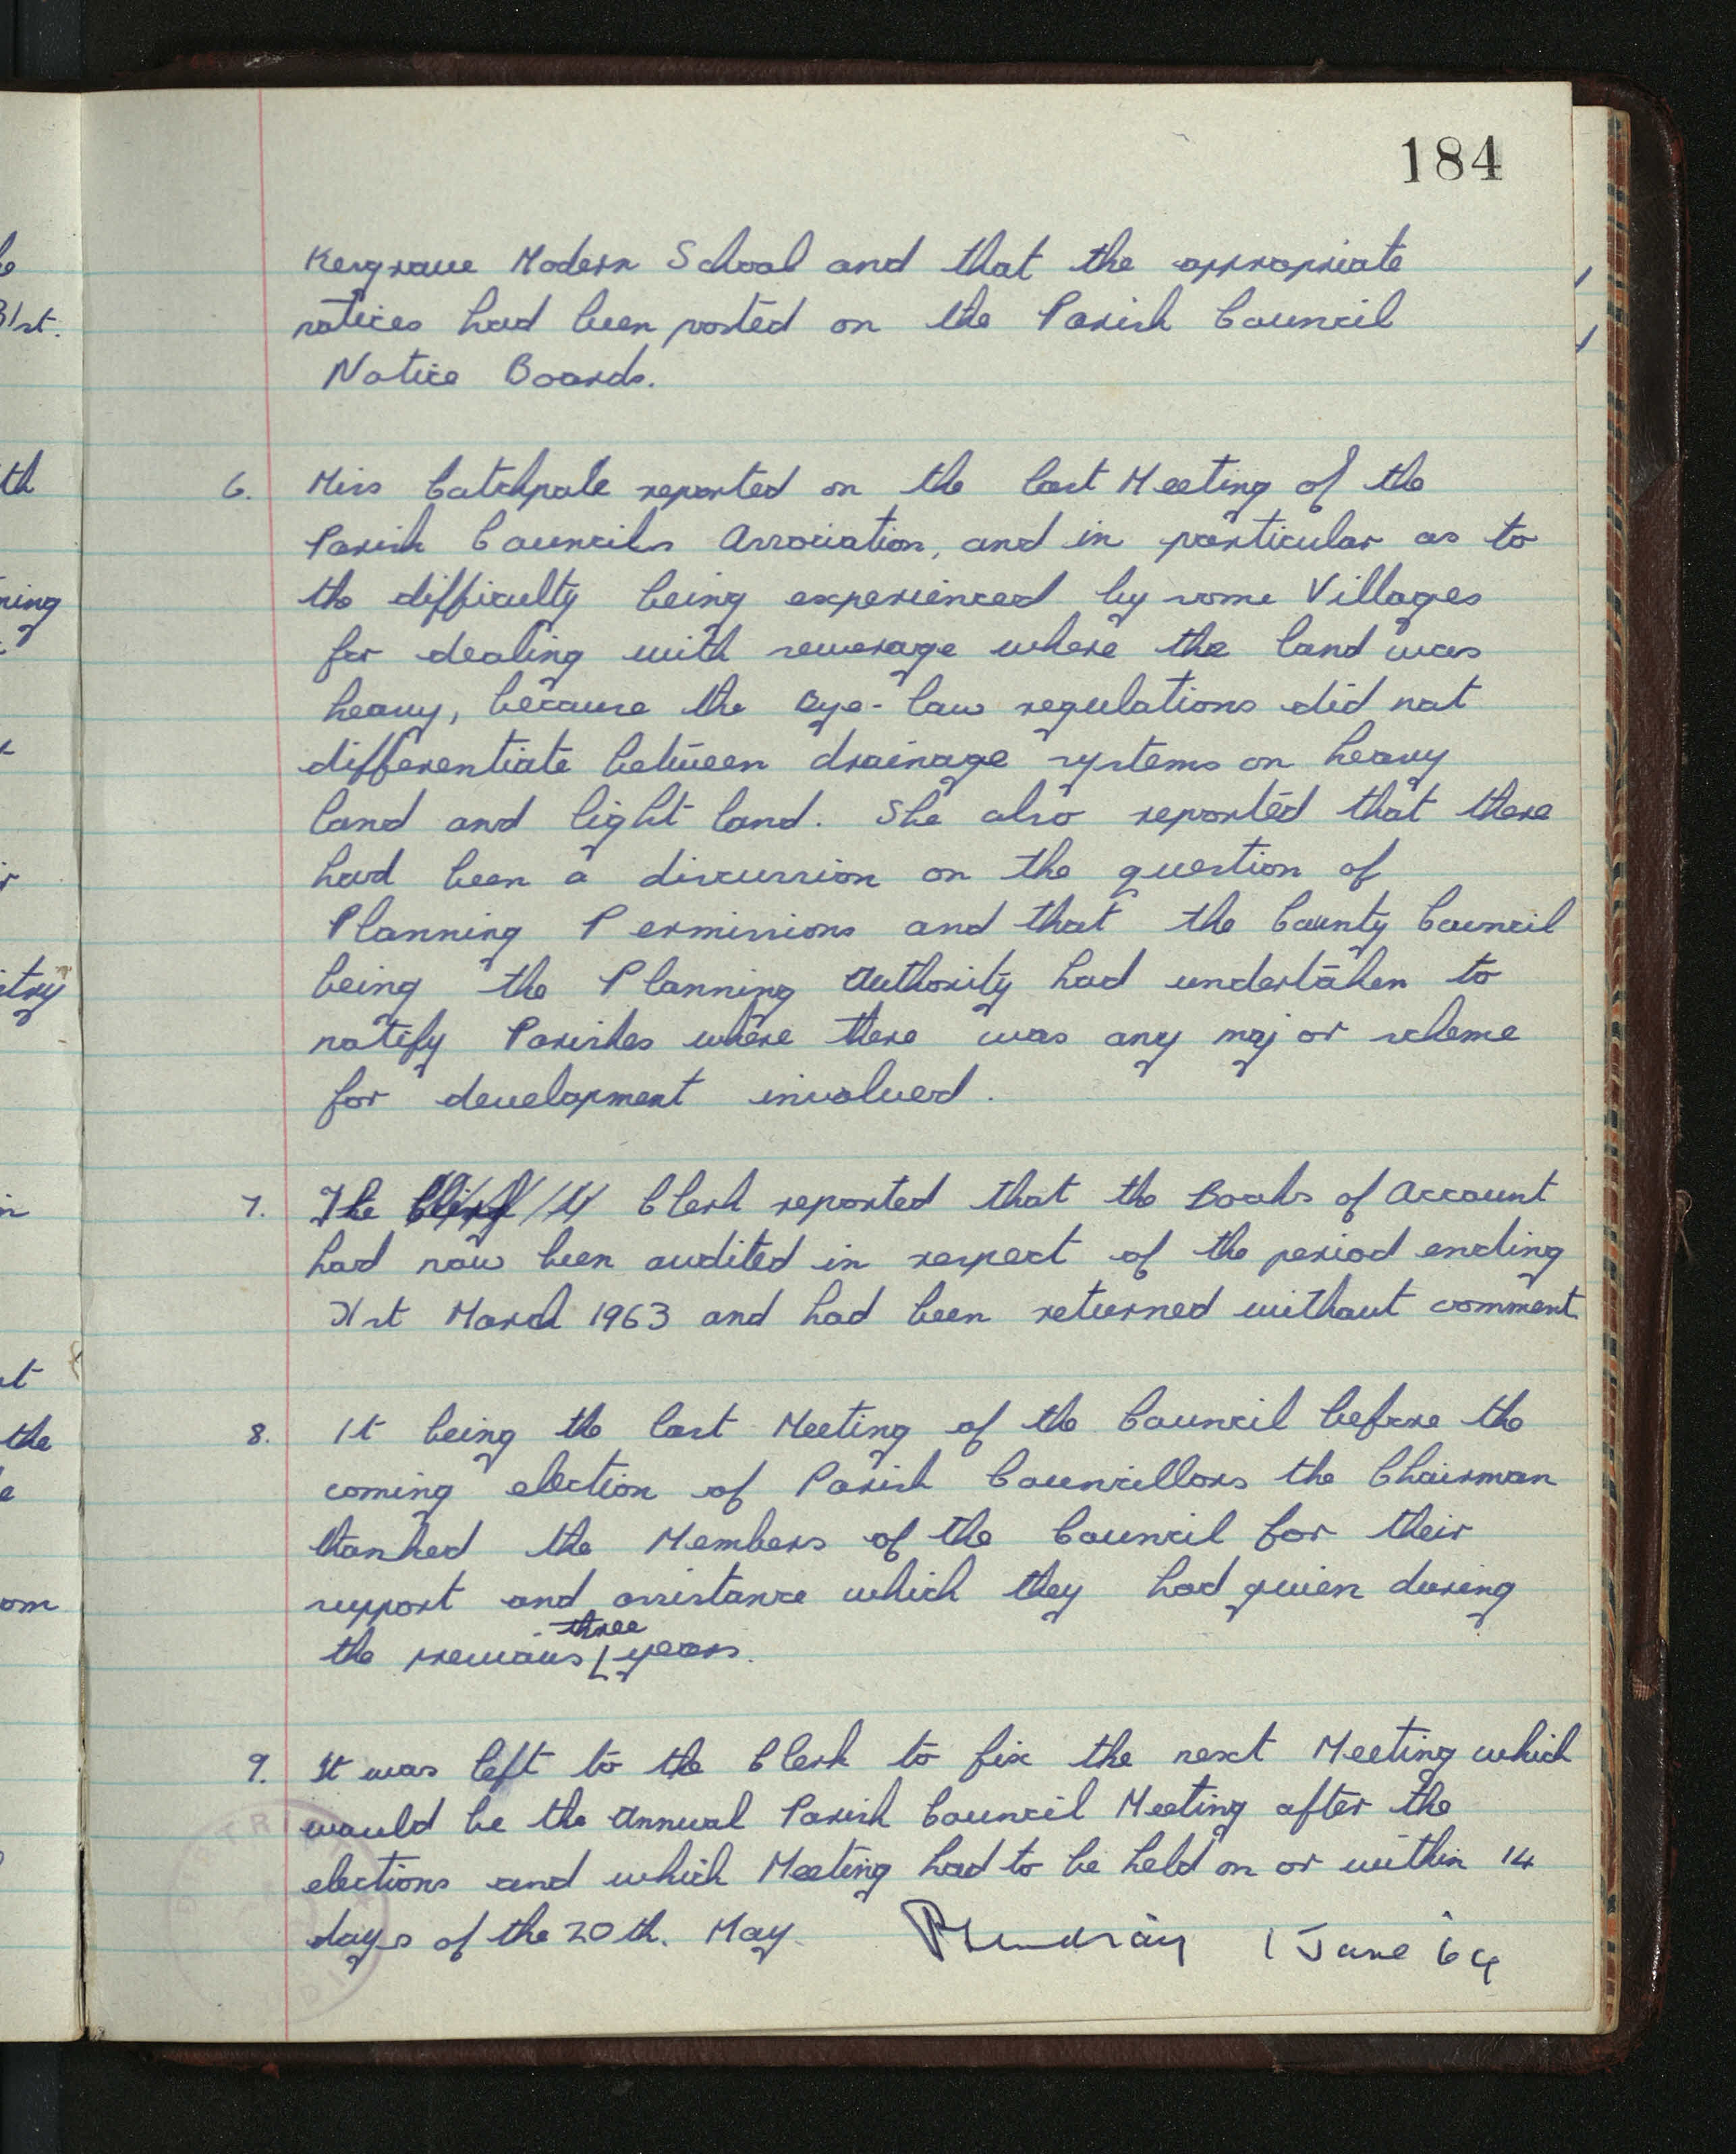 184
Kesgrave Modern School and that the appropriate
notices had been posted on the Parish Council
Notice Boards.
6. Miss Catchpole reported on the last Meeting of the
Parish Councils Association, and in particular as to
the difficulty being experienced by some Villages
for dealing with sewerage where the land was
heavy, because the Bye-law regulations did not
differentiate between drainage systems on heavy
land and light land. She also reported that there
had been a discussion on the question of
Planning Permissions and that the County Council
being the Planning Authority had undertaken to
notify Parishes where there was any major scheme
for development involved.
7. The Clerk reported that the Books of Account
had now been audited in respect of the period ending
31st March 1963 and had been returned without comment
8. It being the last Meeting of the Council before the
coming election of Parish Councillors the Chairman
thanked the Members of the Council for their
support and assistance which they had given during
the previous three years.
9. It was left to the Clerk to fix the next Meeting which
would be the Annual Parish Council Meeting after the
elections and which Meeting had to be held on or within 14
days of the 20th. May. 1 June 64